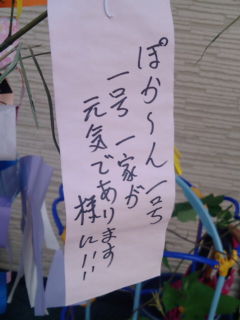 ぽか〜ん一号
一号一家が
元気であります
様に!!